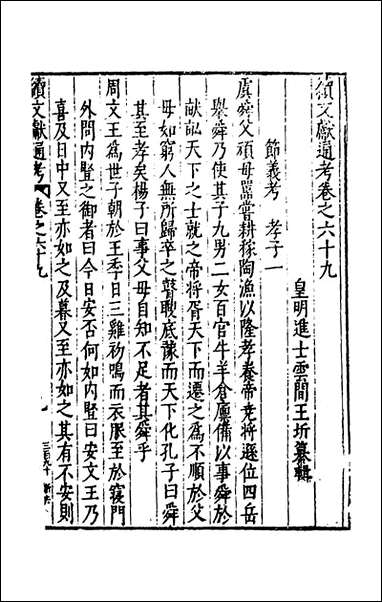 續文獻通考卷之六十九
皇明進士雲間王圻纂輯
節義考　孝子一
虞舜父頑母嚚嘗耕稼陶漁以隆孝養帝堯將遜位四岳
舉舜乃使其子九男二女百官牛羊倉廩備以事舜於
畎畝天下之士就之帝將胥天下而遷之為不順於父
母如窮人無所歸卒之瞽瞍底豫而天下化孔子曰舜
其至孝矣楊子曰事父母自知不足者其舜乎
周文王為世子朝於王季日三雞初鳴而衣服至於寢門
外問內豎之御者曰今日安否何如內豎曰安文王乃
喜及日中又至亦如之及暮又至亦如之其有不安則
續文獻通考
卷之六十九